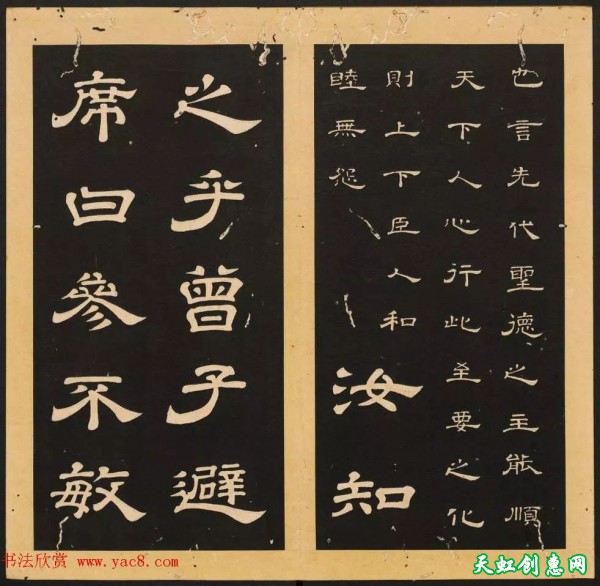 也言先代聖德之主能順
天下人心行此至要之化
則上下臣人和
睦無怨
汝知
之乎曾子避
席曰參不敏
书法欣赏 www.yac8.com
天虹创惠网